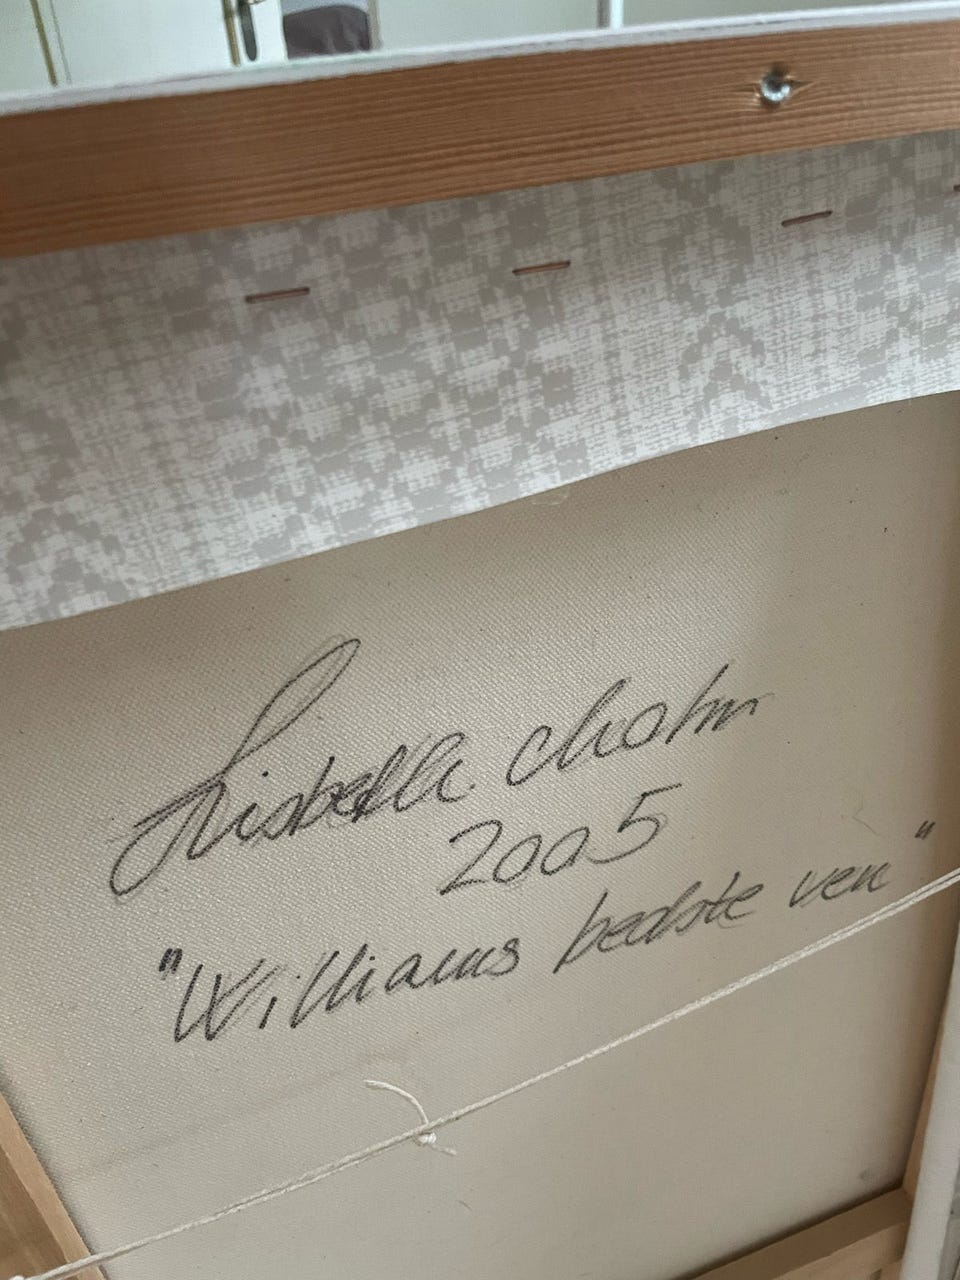 Lisbella
2005
"Williams bedste ven"